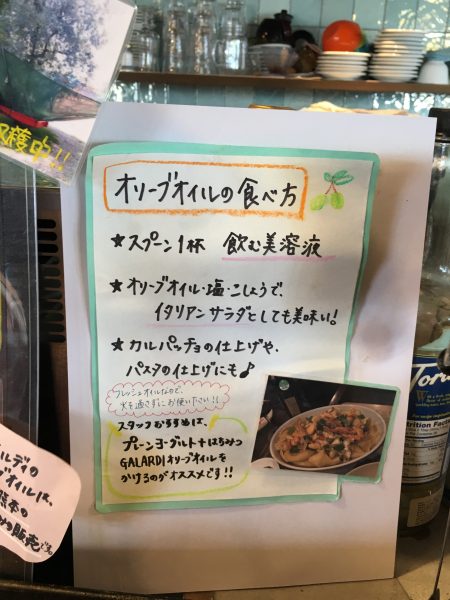 収穫中!!
オリーブオイルの食べ方
★スプーン1杯 飲む美容液
★オリーブオイル・塩・こしょうで、
イタリアンサラダとしても美味い!
★カルパッチョの仕上げや、
パスタの仕上げにも♪
フレッシュオイルなので、
火を通さずにお使いください!!
スタッフおすすめは、
プレーンヨーグルト+はちみつ
GALARDIオリーブオイルを
かけるのがオススメです!!
ルディの
オイルは、
の
販売
Tor
Nutrition Facts